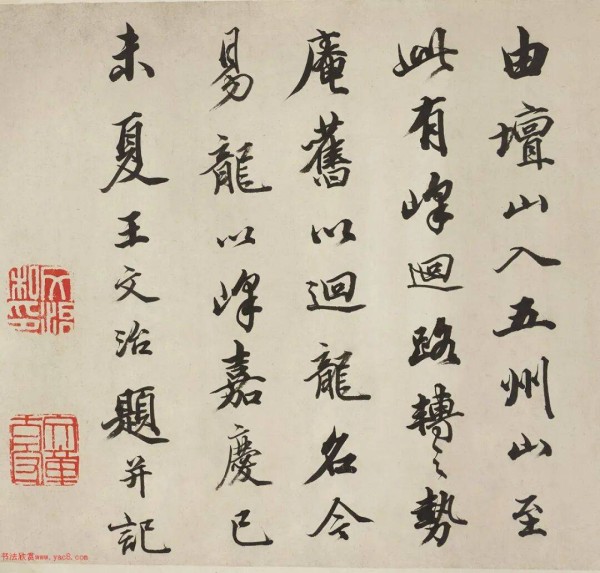 由壇山入五州山至
此有峰迴路轉之勢
庵舊以迴龍名今
易龍以峰嘉慶己
未夏王文治題并記
书法欣赏www.yac8.com